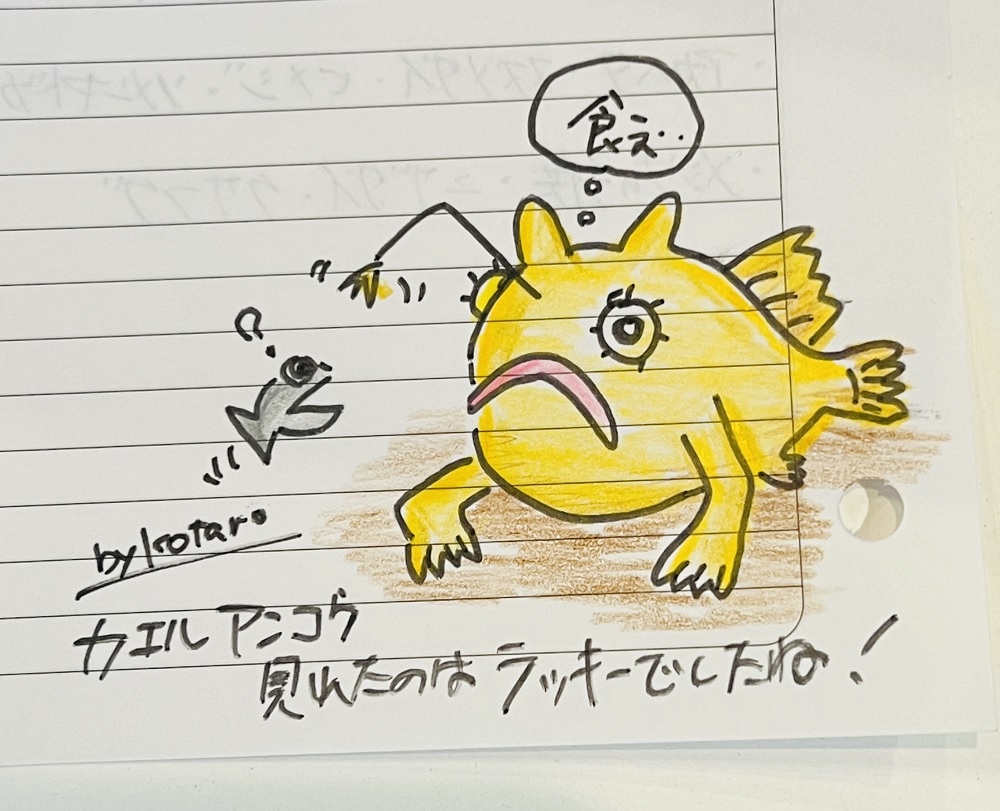 食え..
?
by kotaro
カエルアンコウ
見れたのはラッキーでしたね!